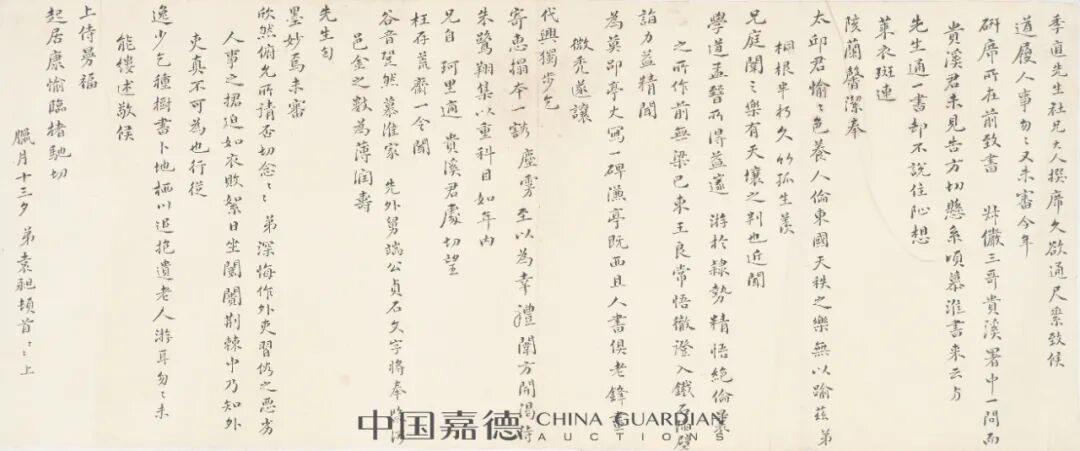 季直先生社兄大人撰席久欲通尺素致候
道履人事匆匆又未審今年
研席所在前致書 叔儼三哥貴溪署中一問而
貴溪君未見告方切懸系頃慕淮書來云與
先生通一書却不說住阯想
萊衣斑連
陔蘭馨潔奉
太邱君愉愉色養人倫東國天秩之樂無以踰茲弟
桐根半朽久竹孤生羨
兄庭闈之樂有天壤之判也近聞
學道孟晉所得益邃游於隸勢精悟絕倫
之所作前無梁巴東王良常悟徹澄入鐵石陷壁
詣力益精聞
為莫邵亭丈寫一碑漁亭既西且人書俱老鋒
微禿遂讓
代興獨步乞
寄惠搨本一 塵雾至以為幸禮闈方開渴待
朱鷺翔集以重科目如年內
兄自珂里適貴溪君處切望
枉存荒齋一令聞
谷音跫然慕淮家 先外舅端公貞石文字將奉
邑金之數為薄潤壽
先生匄
墨妙焉未審
欣然俯允所請否切念念弟深悔作外吏習俗之惡劣
人事之捃迫如衣敗絮日坐闤闠荊棘中乃知外
吏真不可為也行從
逸少乞種樹書卜地栖以追抱遺老人游耳匆匆未
能縷述敬候
上侍曼福
起居康愉臨楮馳切
臘月十三夕 弟袁昶頓首頓首上
中国嘉德 CHINA GUARDIAN
AUCTIONS